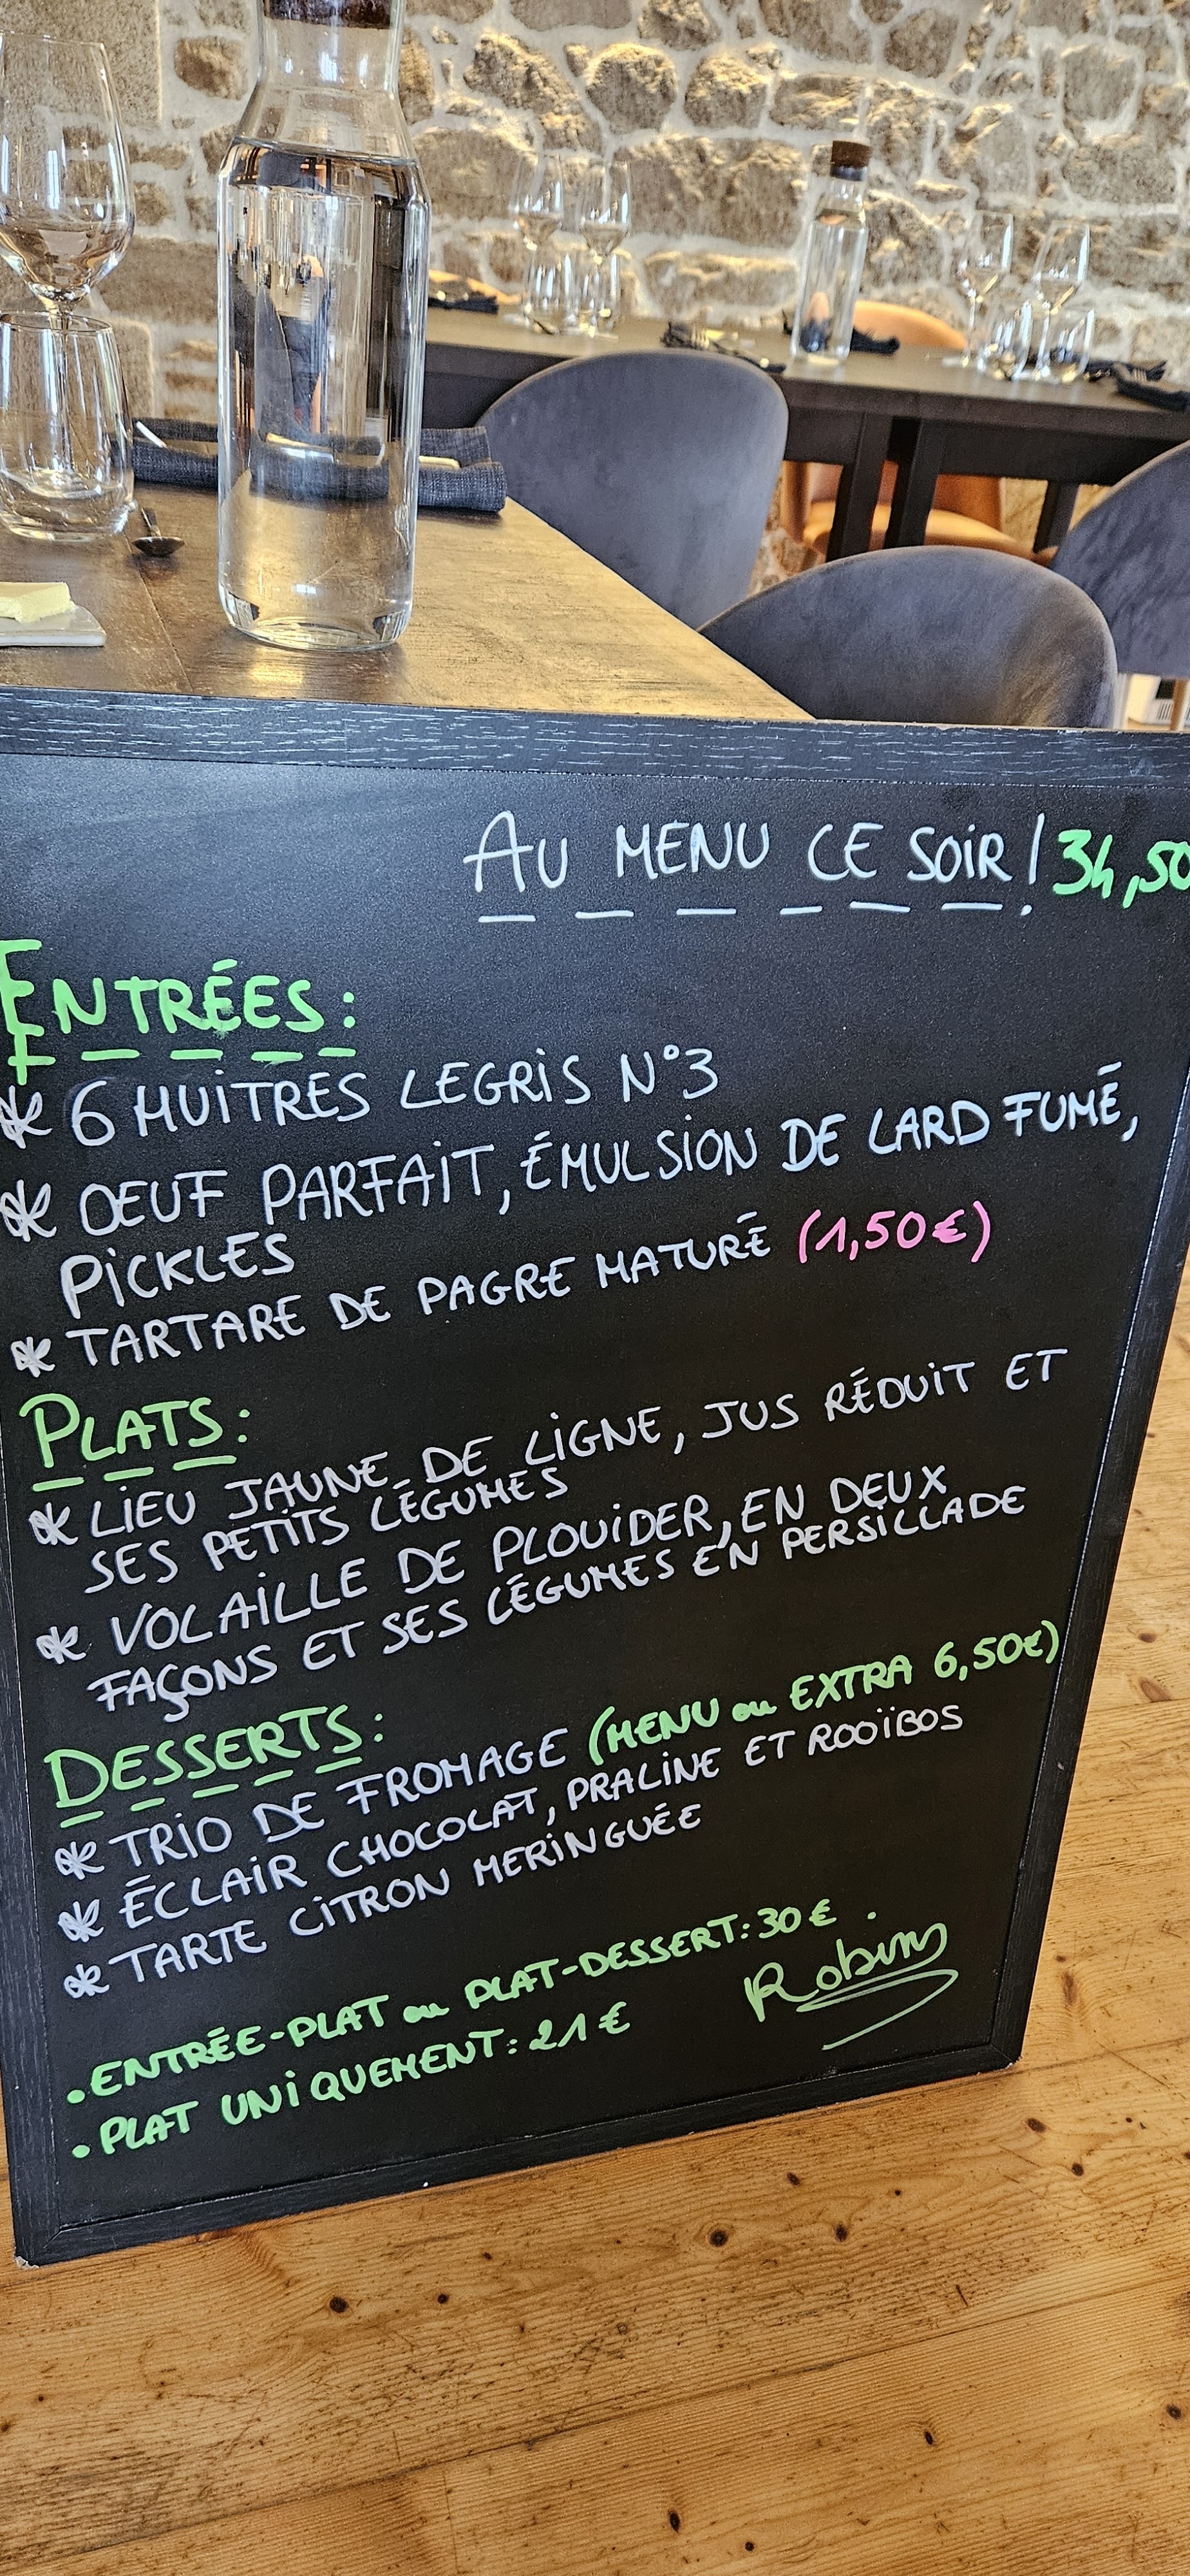 AU MENU CE SOIR ! 34,50
ENTRÉES :
* 6 HUiTRES LEGRiS N°3
* OEUF PARFAiT, ÉMULSiON DE LARD FUMÉ,
PiCKLES
* TARTARE DE PAGRE MATURÉ (1,50€)
PLATS :
* LiEU JAUNE DE LiGNE, JUS RÉDUiT ET
SES PETiTS LÉGUMES
* VOLAiLLE DE PLOUiDER, EN DEUX
FAÇONS ET SES LÉGUMES EN PERSiLLADE
DESSERTS :
* TRiO DE FROMAGE (MENU ou EXTRA 6,50€)
* ÉCLAiR CHOCOLAT, PRALiNE ET ROOÏBOS
* TARTE CiTRON MERiNGUÉE
. ENTRÉE-PLAT ou PLAT-DESSERT : 30 € .
. PLAT UNiQUEMENT : 21 €